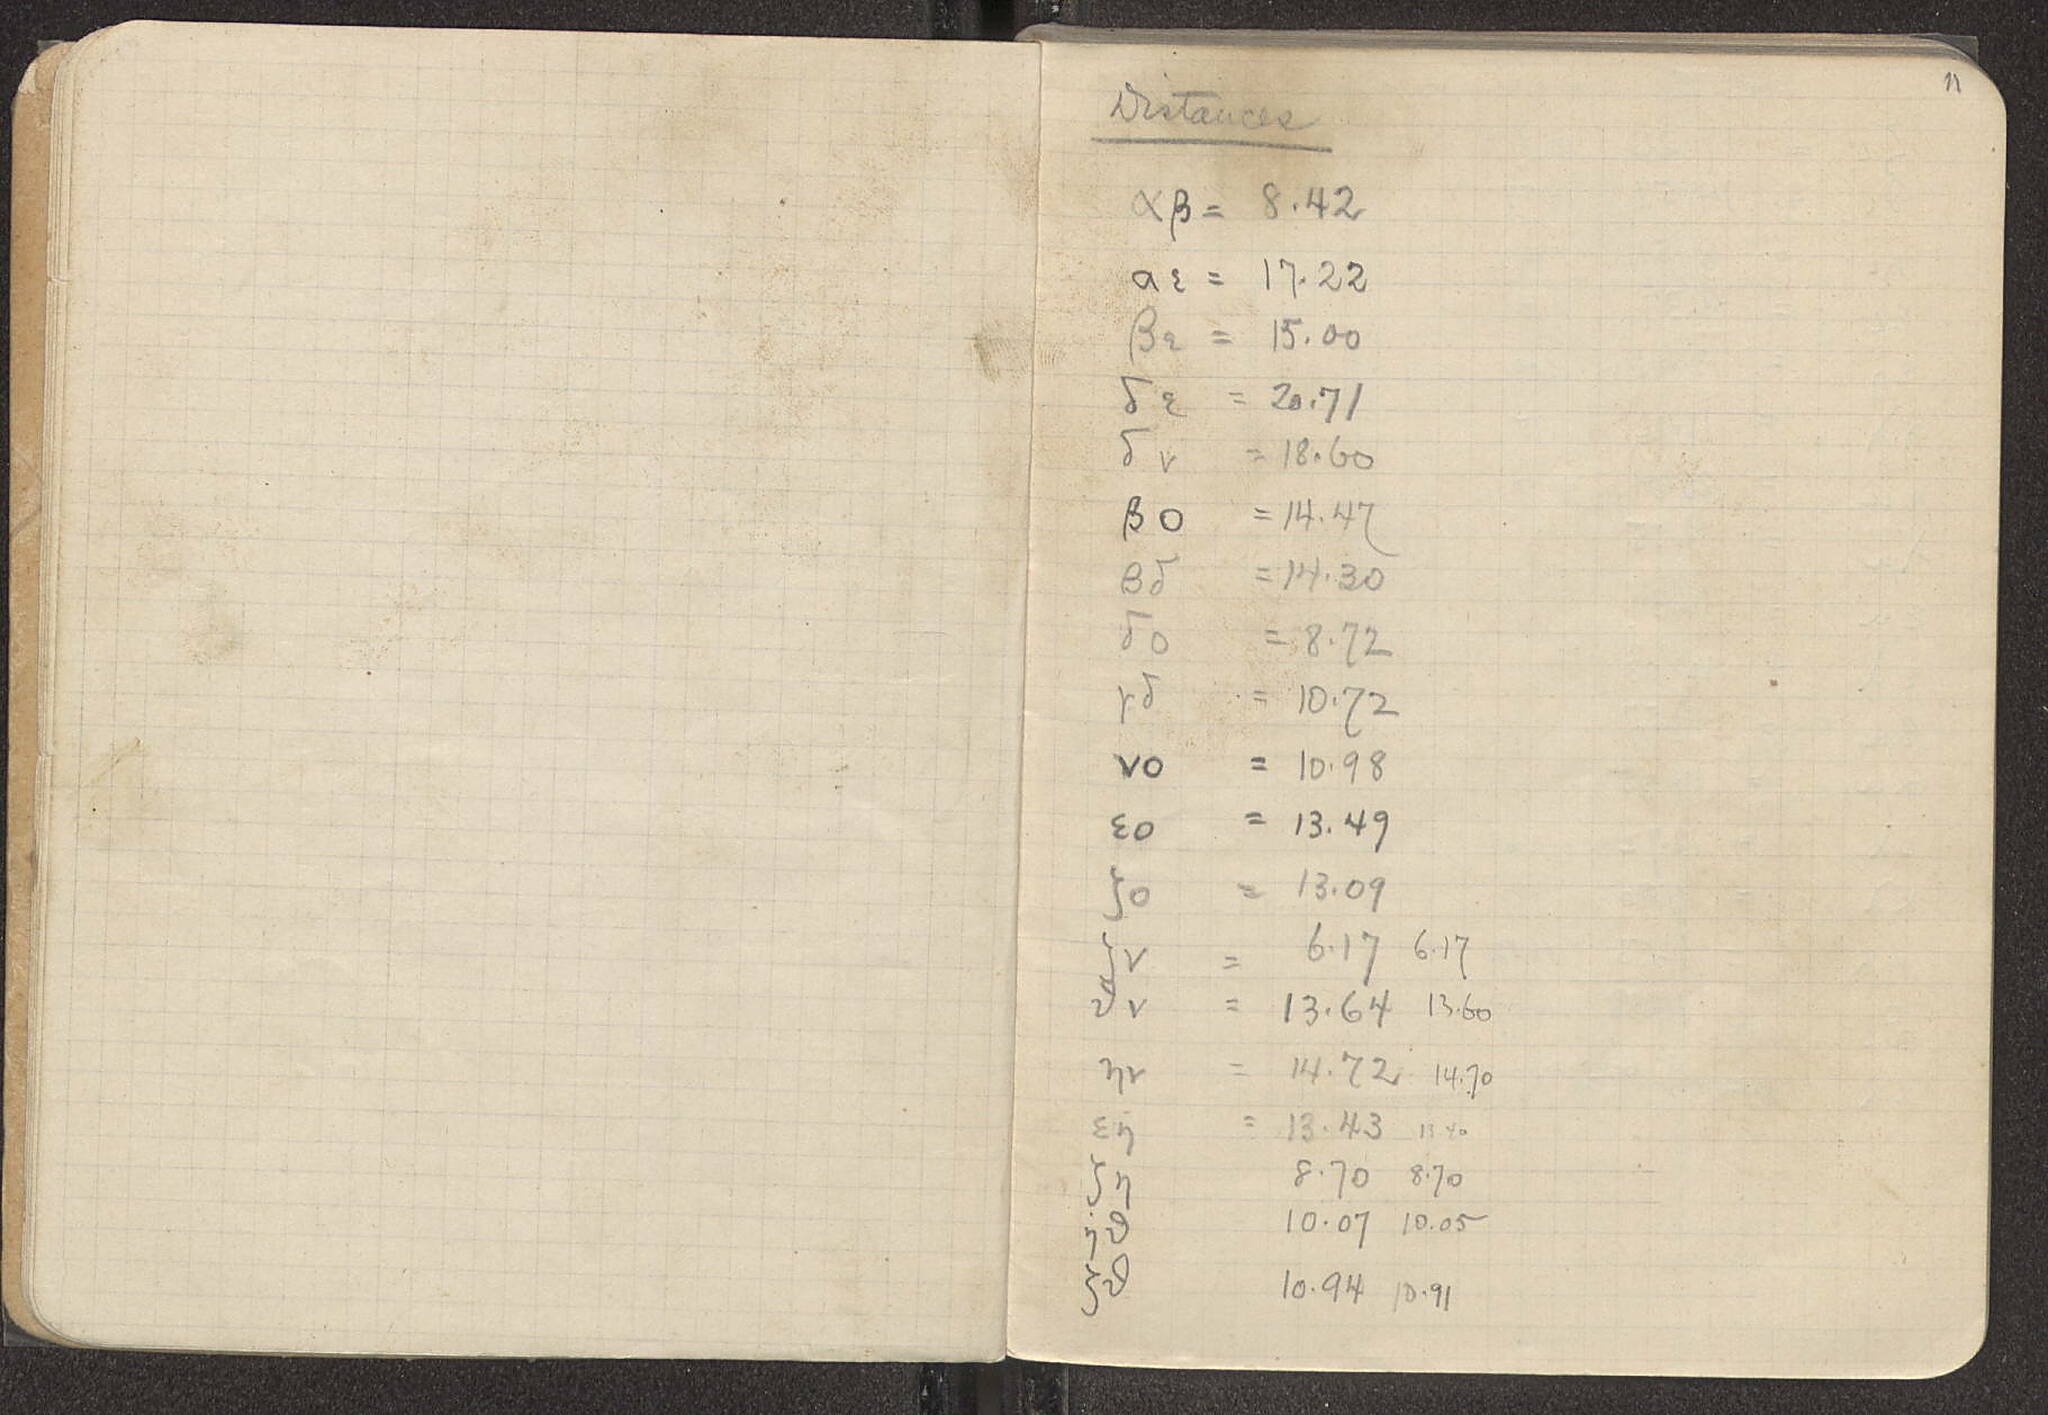 11
Distances
αβ = 8.42
αε = 17.22
βε = 15.00
δε = 20.71
δν = 18.60
βο = 14.47
βδ = 14.30
δο = 8.72
γδ = 10.72
νο = 10.98
εο = 13.49
ζο = 13.09
ζν = 6.17 6.17
ϑν = 13.64 13.60
ην = 14.72 14.70
εη = 13.43 13.40
ζη 8.70 8.70
ηϑ 10.07 10.05
ζϑ 10.94 10.91